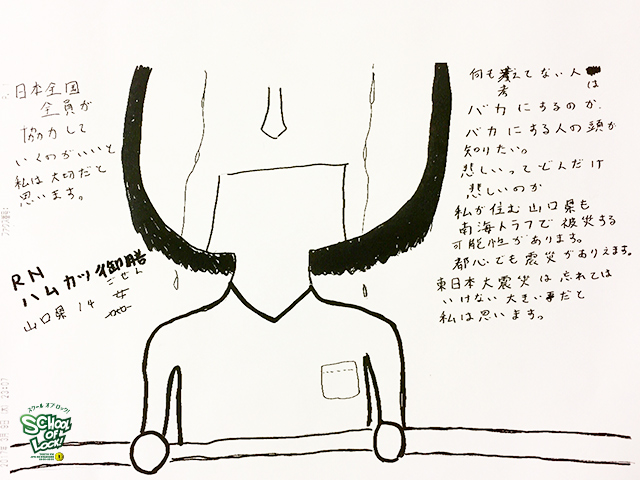 日本全国
全員が
協力して
いくのがいいと
私は大切だと
思います。
RN
ハムカツ御膳
ごぜん
山口県 14 女
何も考えてない人
考 は
バカにするのか、
バカにする人の頭が
知りたい。
悲しいってどんだけ
悲しいのか
私が住む山口県も
南海トラフで被災する
可能性があります。
都心でも震災がありえます。
東日本大震災は忘れては
いけない大きい事だと
私は思います。
スクール オブ ロック!
SCHOOL
OF
LOCK!